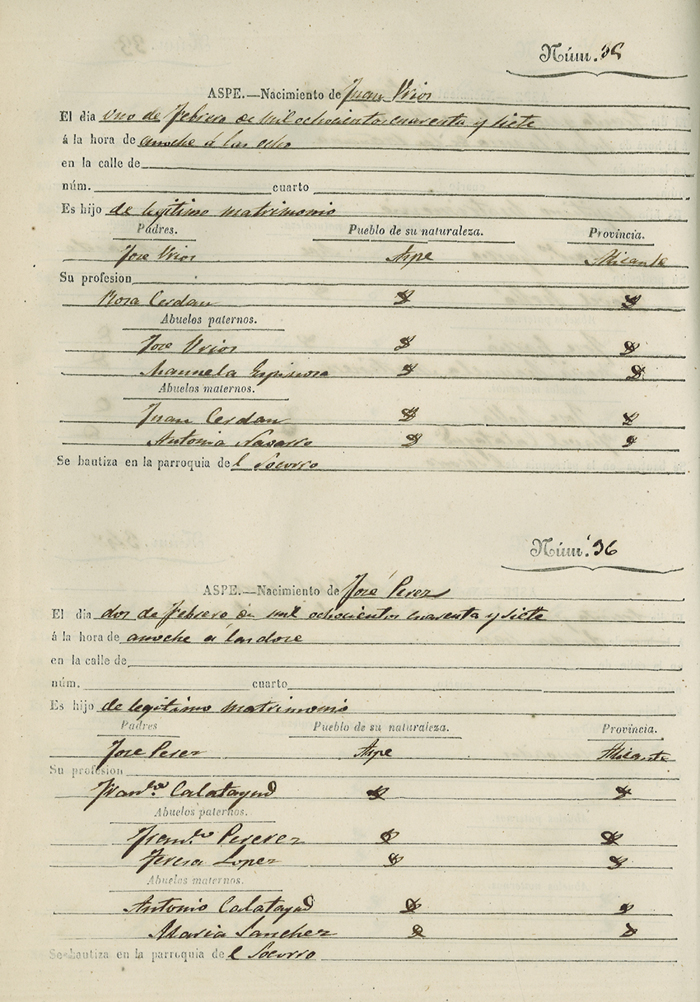 Núm. 35
ASPE.—Nacimiento de Juan Vrios
El dia uno de febrero de mil ochocientos cuarenta y siete
á la hora de anoche á las ocho
en la calle de
núm. cuarto
Es hijo de legitimo matrimonio
Padres. Pueblo de su naturaleza. Provincia.
Jose Vrios Aspe Alicante
Su profesion
Rosa Cerdan
Abuelos paternos.
Jose Vrios
Manuela Espinosa
Abuelos maternos.
Juan Cerdan
Antonia Navarro
Se bautiza en la parroquia del Socorro
Núm. 36
ASPE.—Nacimiento de José Perez
El dia dos de febrero de mil ochocientos cuarenta y siete
á la hora de anoche á las doce
en la calle de
núm. cuarto
Es hijo de legitimo matrimonio
Padres Pueblo de su naturaleza. Provincia.
Jose Perez Aspe Alicante
Su profesion
Fran.ca Calatayud
Abuelos paternos.
Fran.co Pererez
Teresa Lopez
Abuelos maternos.
Antonio Calatayud
Maria Sanchez
Se bautiza en la parroquia del Socorro